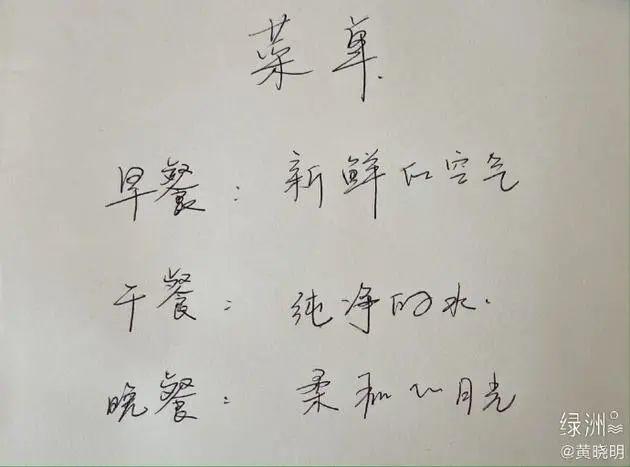 菜单
早餐：新鲜的空气
干餐：纯净的水.
晚餐：柔和的月光
绿洲
@黄晓明